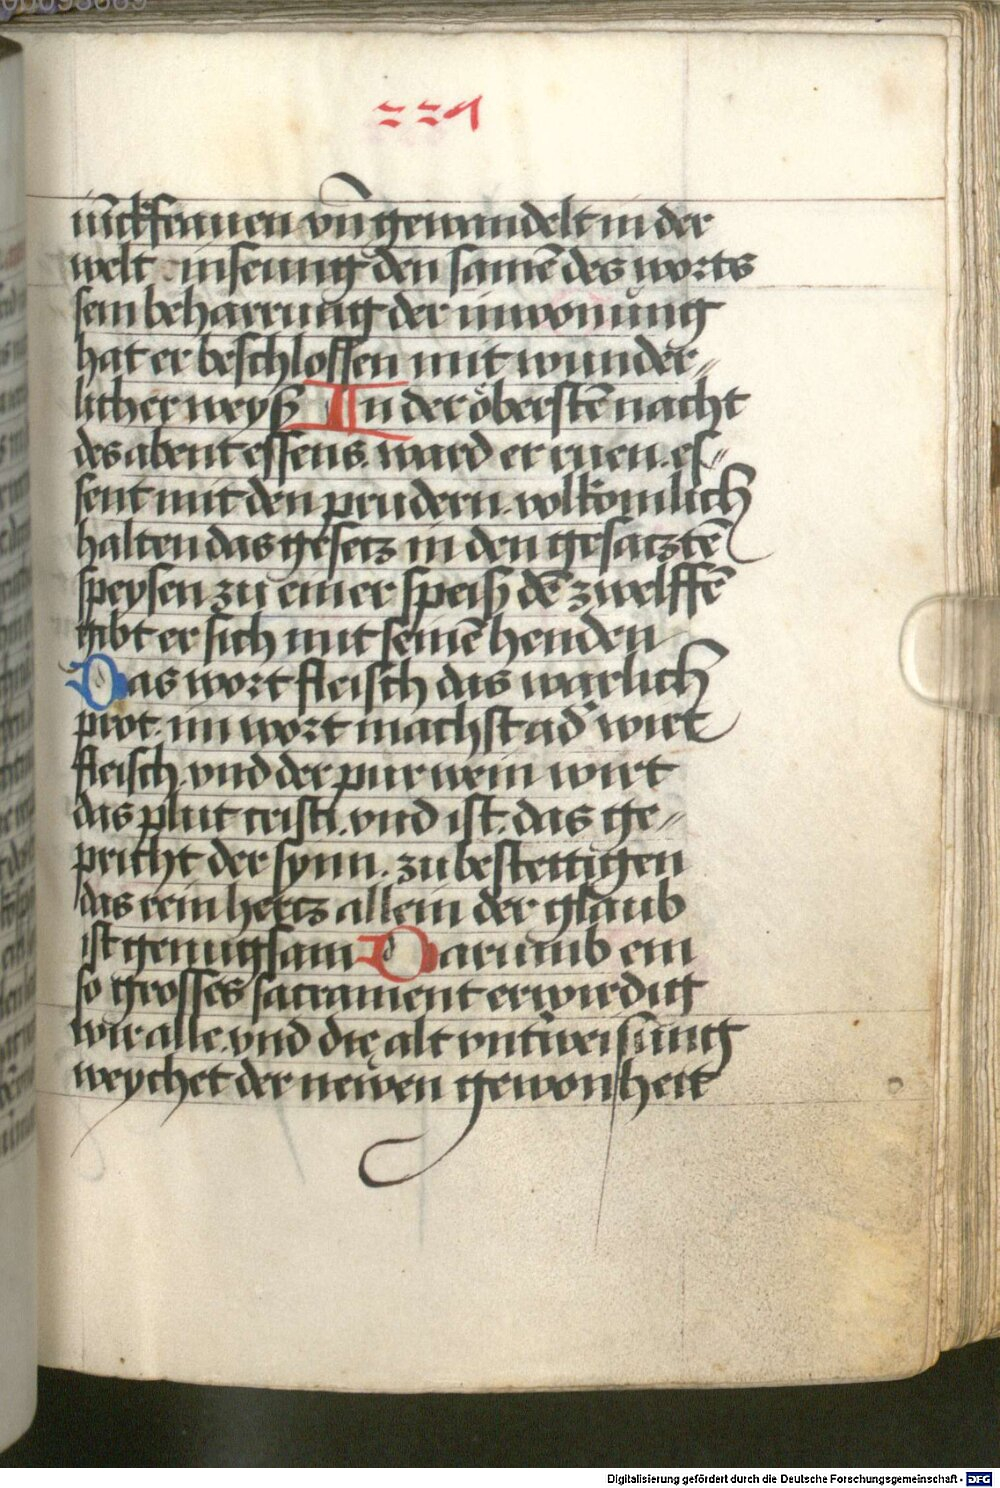 221
iūckfrauen vn̄ gewandelt in der
welt inseung den samē des worts
sein beharrung der inwonung
hat er beschlossen mit wunder⸗
licher weyß In der öberstē nacht
des abent essens. ward er ruen. es⸗
sent mit den prudern. volkomlich
halten das gesetz in den gesatztē
speysen zu einer speiß dē zwelffē
gibt er sich mit seinē henden
Das wort fleisch das warlich
prot. im wort machst ad' wirt
fleisch. vnd der pur wein wirt
das plut cristi. vnd ist. das ge⸗
pricht der synn. zu bestettigen
das rein hertz allein der glaub
ist genugsam Darumb ein
so grosses sacrament erwirdig
wir alle. vnd die alt vnt'weisung
weychet der newen gewonheit
Digitalisierung gefördert durch die Deutsche Forschungsgemeinschaft - DFG